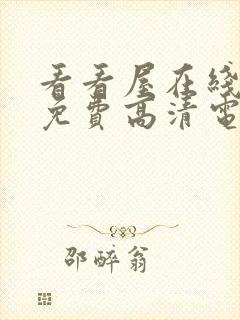 看看屋在綫
免費高清電
邵醉翁